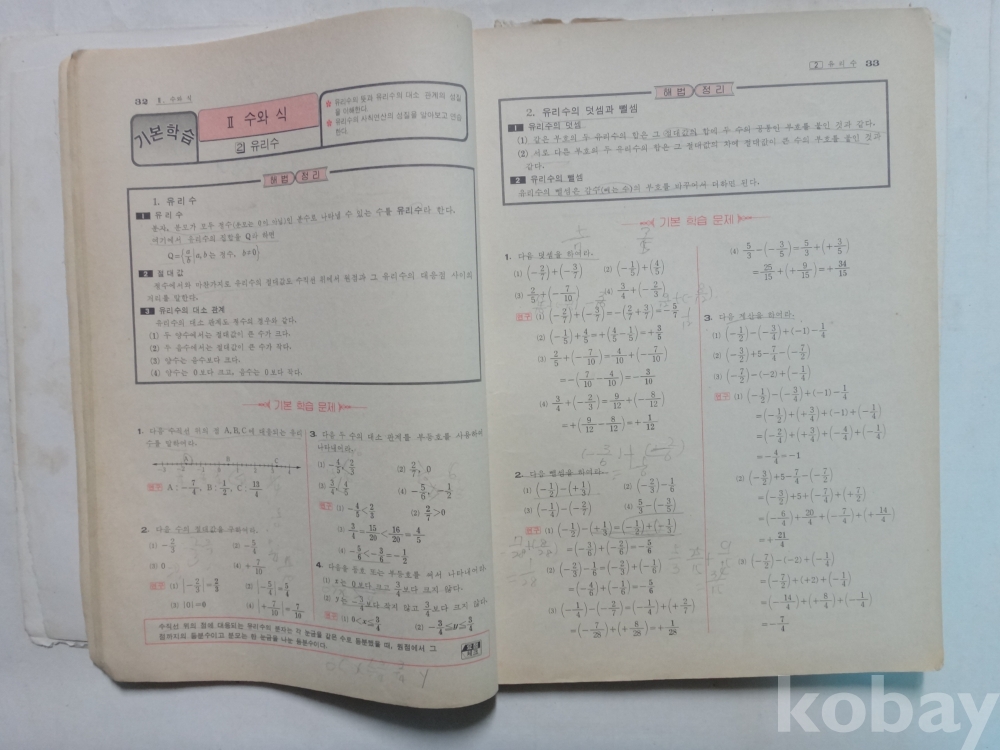 32 Ⅱ. 수와 식
기본학습
Ⅱ 수와 식
② 유리수
★ 유리수의 뜻과 유리수의 대소 관계의 성질
을 이해한다.
★ 유리수의 사칙연산의 성질을 알아보고 연습
한다.
해법 정리
1. 유리수
1 유리수
분자, 분모가 모두 정수(분모는 0이 아님)인 분수로 나타낼 수 있는 수를 유리수라 한다.
여기에서 유리수의 집합을 Q라 하면
Q={a/b|a, b는 정수, b≠0}
2 절대값
정수에서와 마찬가지로 유리수의 절대값도 수직선 위에서 원점과 그 유리수의 대응점 사이의
거리를 말한다.
3 유리수의 대소 관계
유리수의 대소 관계도 정수의 경우와 같다.
(1) 두 양수에서는 절대값이 큰 수가 크다.
(2) 두 음수에서는 절대값이 큰 수가 작다.
(3) 양수는 음수보다 크다.
(4) 양수는 0보다 크고, 음수는 0보다 작다.
기본 학습 문제
1. 다음 수직선 위의 점 A, B, C에 대응되는 유리
수를 말하여라.
A B C
A : -7/4, B : 1/2, C : 13/4
2. 다음 수의 절대값을 구하여라.
(1) -2/3 (2) -5/4
(3) 0 (4) +7/10
(1) |-2/3|=2/3 (2) |-5/4|=5/4
(3) |0|=0 (4) |+7/10|=7/10
3. 다음 두 수의 대소 관계를 부등호를 사용하여
나타내어라.
(1) -4/5, 2/3 (2) 2/7, 0
(3) 3/4, 4/5 (4) -5/6, -1/2
(1) -4/5<2/3 (2) 2/7>0
(3) 3/4=15/20<16/20=4/5
(4) -5/6<-3/6=-1/2
4. 다음을 등호 또는 부등호를 써서 나타내어라.
(1) x는 0보다 크고 3/4보다 크지 않다.
(2) y는 -3/4보다 작지 않고 3/4보다 크지 않다.
(1) 0<x≤3/4 (2) -3/4≤y≤3/4
수직선 위의 점에 대응되는 유리수의 분자는 각 눈금을 같은 수로 등분했을 때, 원점에서 그
점까지의 등분수이고 분모는 한 눈금을 나눈 등분수이다.
② 유리수 33
해법 정리
2. 유리수의 덧셈과 뺄셈
1 유리수의 덧셈
(1) 같은 부호의 두 유리수의 합은 그 절대값의 합에 두 수의 공통인 부호를 붙인 것과 같다.
(2) 서로 다른 부호의 두 유리수의 합은 그 절대값의 차에 절대값이 큰 수의 부호를 붙인 것과
같다.
2 유리수의 뺄셈
유리수의 뺄셈은 감수(빼는 수)의 부호를 바꾸어서 더하면 된다.
기본 학습 문제
1. 다음 덧셈을 하여라.
(1) (-2/7)+(-3/7) (2) (-1/5)+(4/5)
(3) 2/5+(-7/10) (4) 3/4+(-2/3)
(1) (-2/7)+(-3/7)=-(2/7+3/7)=-5/7
(2) (-1/5)+4/5=+(4/5-1/5)=+3/5
(3) 2/5+(-7/10)=4/10+(-7/10)
=-(7/10-4/10)=-3/10
(4) 3/4+(-2/3)=9/12+(-8/12)
=+(9/12-8/12)=+1/12
2. 다음 뺄셈을 하여라.
(1) (-1/2)-(+1/3) (2) (-2/3)-1/6
(3) (-1/4)-(-2/7) (4) 5/3-(-3/5)
(1) (-1/2)-(+1/3)=(-1/2)+(-1/3)
=(-3/6)+(-2/6)=-5/6
(2) (-2/3)-1/6=(-2/3)+(-1/6)
=(-4/6)+(-1/6)=-5/6
(3) (-1/4)-(-2/7)=(-1/4)+(+2/7)
=(-7/28)+(+8/28)=+1/28
(4) 5/3-(-3/5)=5/3+(+3/5)
=25/15+(+9/15)=+34/15
3. 다음 계산을 하여라.
(1) (-1/2)-(-3/4)+(-1)-1/4
(2) (-3/2)+5-7/4-(-7/2)
(3) (-7/2)-(-2)+(-1/4)
(1) (-1/2)-(-3/4)+(-1)-1/4
=(-1/2)+(+3/4)+(-1)+(-1/4)
=(-2/4)+(+3/4)+(-4/4)+(-1/4)
=-4/4=-1
(2) (-3/2)+5-7/4-(-7/2)
=(-3/2)+5+(-7/4)+(+7/2)
=(-6/4)+20/4+(-7/4)+(+14/4)
=+21/4
(3) (-7/2)-(-2)+(-1/4)
=(-7/2)+(+2)+(-1/4)
=(-14/4)+(+8/4)+(-1/4)
=-7/4
kobay